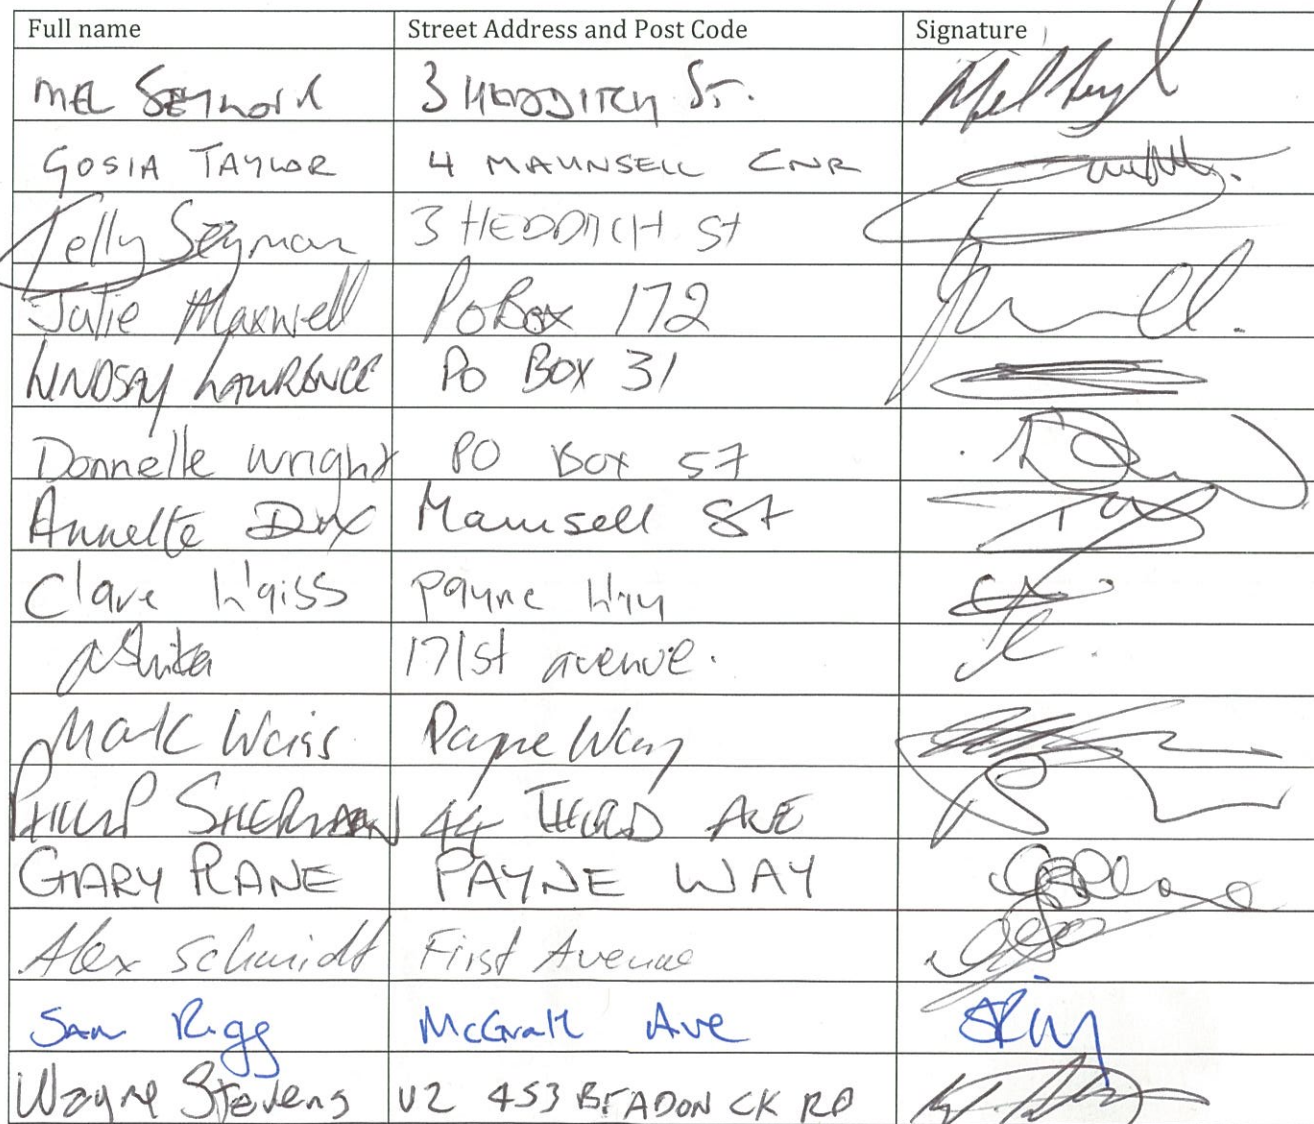 Full name Street Address and Post Code Signature
MEL SEYMOUR 3 HEDDITCH ST.
GOSIA TAYLOR 4 MAUNSELL CNR
Kelly Seymour 3 HEDDITCH St
Julie Maxwell PO Box 172
LINDSAY LAWRENCE PO BOX 31
Donnelle Wright PO Box 57
Annette Dix Maunsell St
Clare Waiss Payne Way
171st avenue.
Mark Weiss Payne Way
PHILIP SHERMAN 44 THIRD AVE
GARY PLANE PAYNE WAY
Alex Schmidt First Avenue
Sam Rigg McGrath Ave
Wayne Stevens U2 453 BEADON CK RD